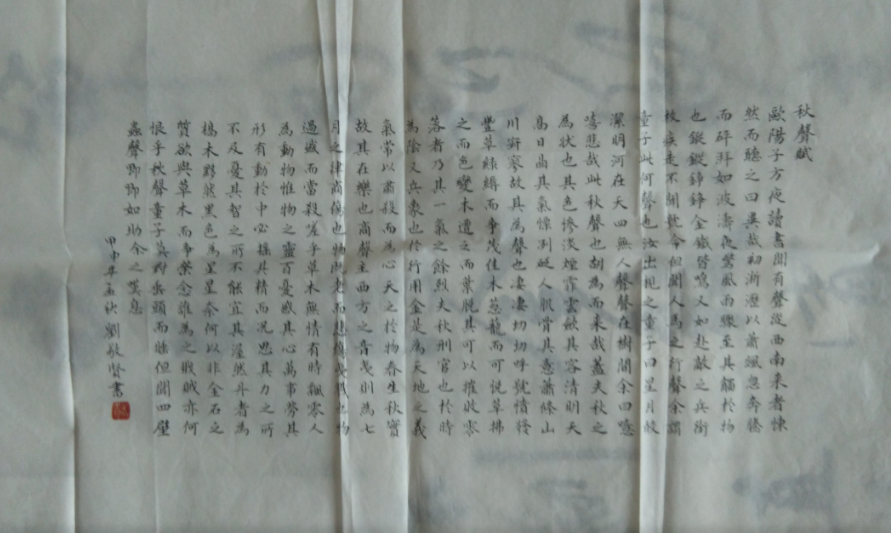 秋聲賦
歐陽子方夜讀書聞有聲從西南來者悚
然而聽之曰異哉初淅瀝以蕭颯忽奔騰
而砰湃如波濤夜驚風雨驟至其觸於物
也鏦鏦錚錚金鐵皆鳴又如赴敵之兵銜
枚疾走不聞號令但聞人馬之行聲余謂
童子此何聲也汝出視之童子曰星月皎
潔明河在天四無人聲聲在樹間余曰噫
嘻悲哉此秋聲也胡為而來哉蓋夫秋之
為狀也其色慘淡煙霏雲斂其容清明天
高日晶其氣慄冽砭人肌骨其意蕭條山
川寂寥故其為聲也淒淒切切呼號憤發
豐草綠縟而爭茂佳木蔥蘢而可悅草拂
之而色變木遭之而葉脫其可以摧敗零
落者乃其一氣之餘烈夫秋刑官也於時
為陰又兵象也於行用金是為天地之義
氣常以肅殺而為心天之於物春生秋實
故其在樂也商聲主西方之音夷則為七
月之律商傷也物既老而悲傷夷戮也物
過盛而當殺嗟乎草木無情有時飄零人
為動物惟物之靈百憂感其心萬事勞其
形有動於中必搖其精而況思其力之所
不及憂其智之所不能宜其渥然丹者為
槁木黟然黑色為星星奈何以非金石之
質欲與草木而爭榮念誰為之戕賊亦何
恨乎秋聲童子莫對垂頭而睡但聞四壁
蟲聲唧唧如助余之嘆息
甲申年孟秋劉敬賢書